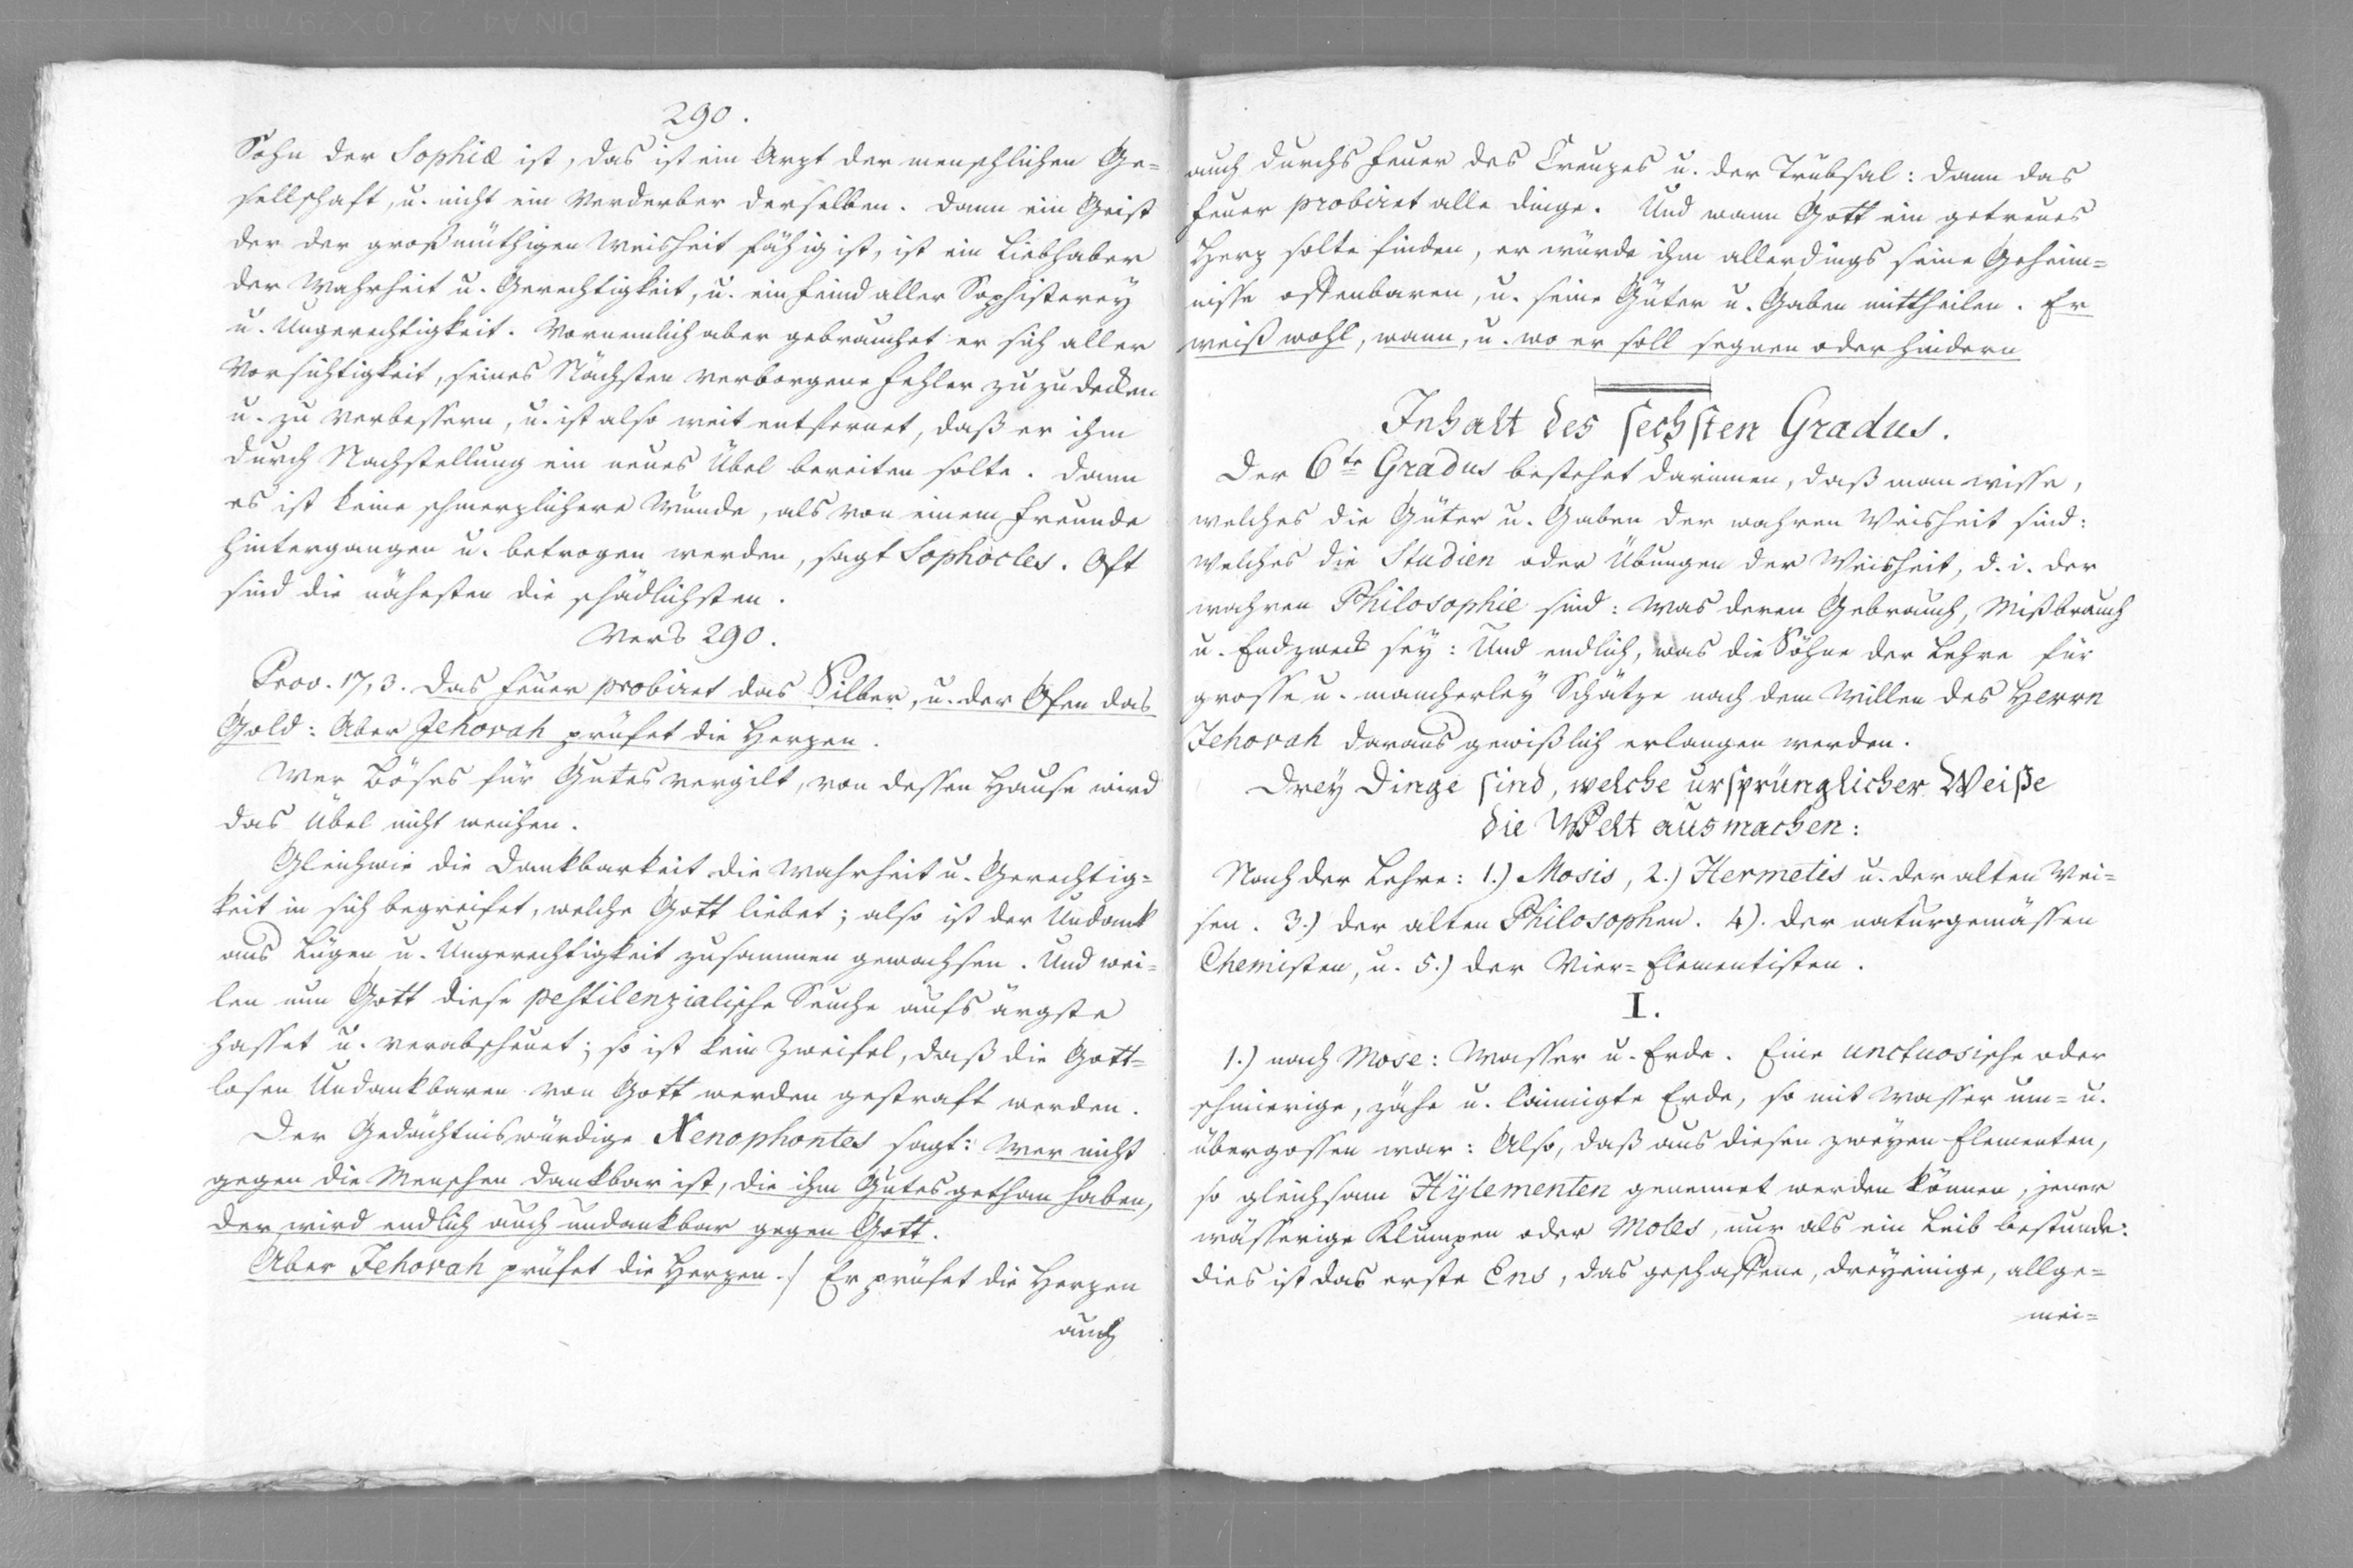 290.
Sohn der Sophiæ ist, das ist ein Arzt der menschlichen Ge=
sellschaft, u. nicht ein Verderber derselben. Dann ein Geist
der der großmüthigen Weisheit fähig ist, ist ein Liebhaber
der Wahrheit u. Gerechtigkeit, u. ein Feind aller Sophisterey
u. Ungerechtigkeit. Vornemlich aber gebrauchet er sich aller
Vorsichtigkeit, seines Nächsten verborgene Fehler zu zu decken
u. zu verbessern, u. ist also weit entfernet, daß er ihm
durch Nachstellung ein neues Übel bereiten solte. Dann
es ist keine schmerzlichere Wunde, als von einem Freunde
hintergangen u. betrogen werden, sagt Sophocles. Oft
sind die nähesten die schädlichsten.
Vers 290.
Prov. 17, 3. Das Feuer probiret das Silber, u. der Ofen das
Gold: Aber Jehovah prüfet die Herzen.
Wer Böses für Gutes vergilt, von dessen Hause wird
das Übel nicht weichen.
Gleichwie die Dankbarkeit die Wahrheit u. Gerechtig=
keit in sich begreifet, welche Gott liebet; also ist der Undank
aus Lügen u. Ungerechtigkeit zusammen gewachsen. Und wei=
len nun Gott diese pestilenzialische Seuche aufs ärgste
hasset u. verabscheuet; so ist kein Zweifel, daß die Gott=
losen Undankbaren von Gott werden gestraft werden.
Der Gedächtniswürdige Xenophontes sagt: Wer nicht
gegen die Menschen dankbar ist, die ihm Gutes gethan haben,
der wird endlich auch undankbar gegen Gott.
Aber Jehovah prüfet die Herzen./ Er prüfet die Herzen
auch
auch durchs Feuer des Creuzes u. der Trübsal: Dann das
Feuer probiret alle Dinge. Und wann Gott ein getreues
Herz solte finden, er würde ihm allerdings seine Geheim=
nisse offenbaren, u. seine Güter u. Gaben mittheilen. Er
weiß wohl, wann, u. wo er soll segnen oder hindern
Inhalt des sechsten Gradus.
Der 6te Gradus bestehet darinnen, daß man wisse,
welches die Güter u. Gaben der wahren Weisheit sind:
Welches die Studien oder Übungen der Weisheit, d. i. der
wahren Philosophie sind: Was deren Gebrauch, Mißbrauch
u. Endzweck sey: Und endlich, was die Söhne der Lehre für
grosse u. mancherley Schätze nach dem Willen des Herrn
Jehovah daraus gewißlich erlangen werden.
Drey Dinge sind, welche ursprünglicher Weiße
die Welt ausmachen:
Nach der Lehre: 1.) Mosis, 2.) Hermetis u. der alten Wei=
sen. 3.) der alten Philosophen. 4). der naturgemässen
Chemisten, u. 5.) der Vier=Elementisten.
I.
1.) nach Mose: Wasser u. Erde. Eine unctuosische oder
schmierige, zähe u. laimigte Erde, so mit Wasser um= u.
übergossen war: Also, daß aus diesen zweyen Elementen,
so gleichsam Hÿlementen genennet werden können, jener
wässerige Klumpen oder Moles, nur als ein Leib bestunde:
Dies ist das erste Ens, das geschaffene, dreyeinige, allge=
mei=